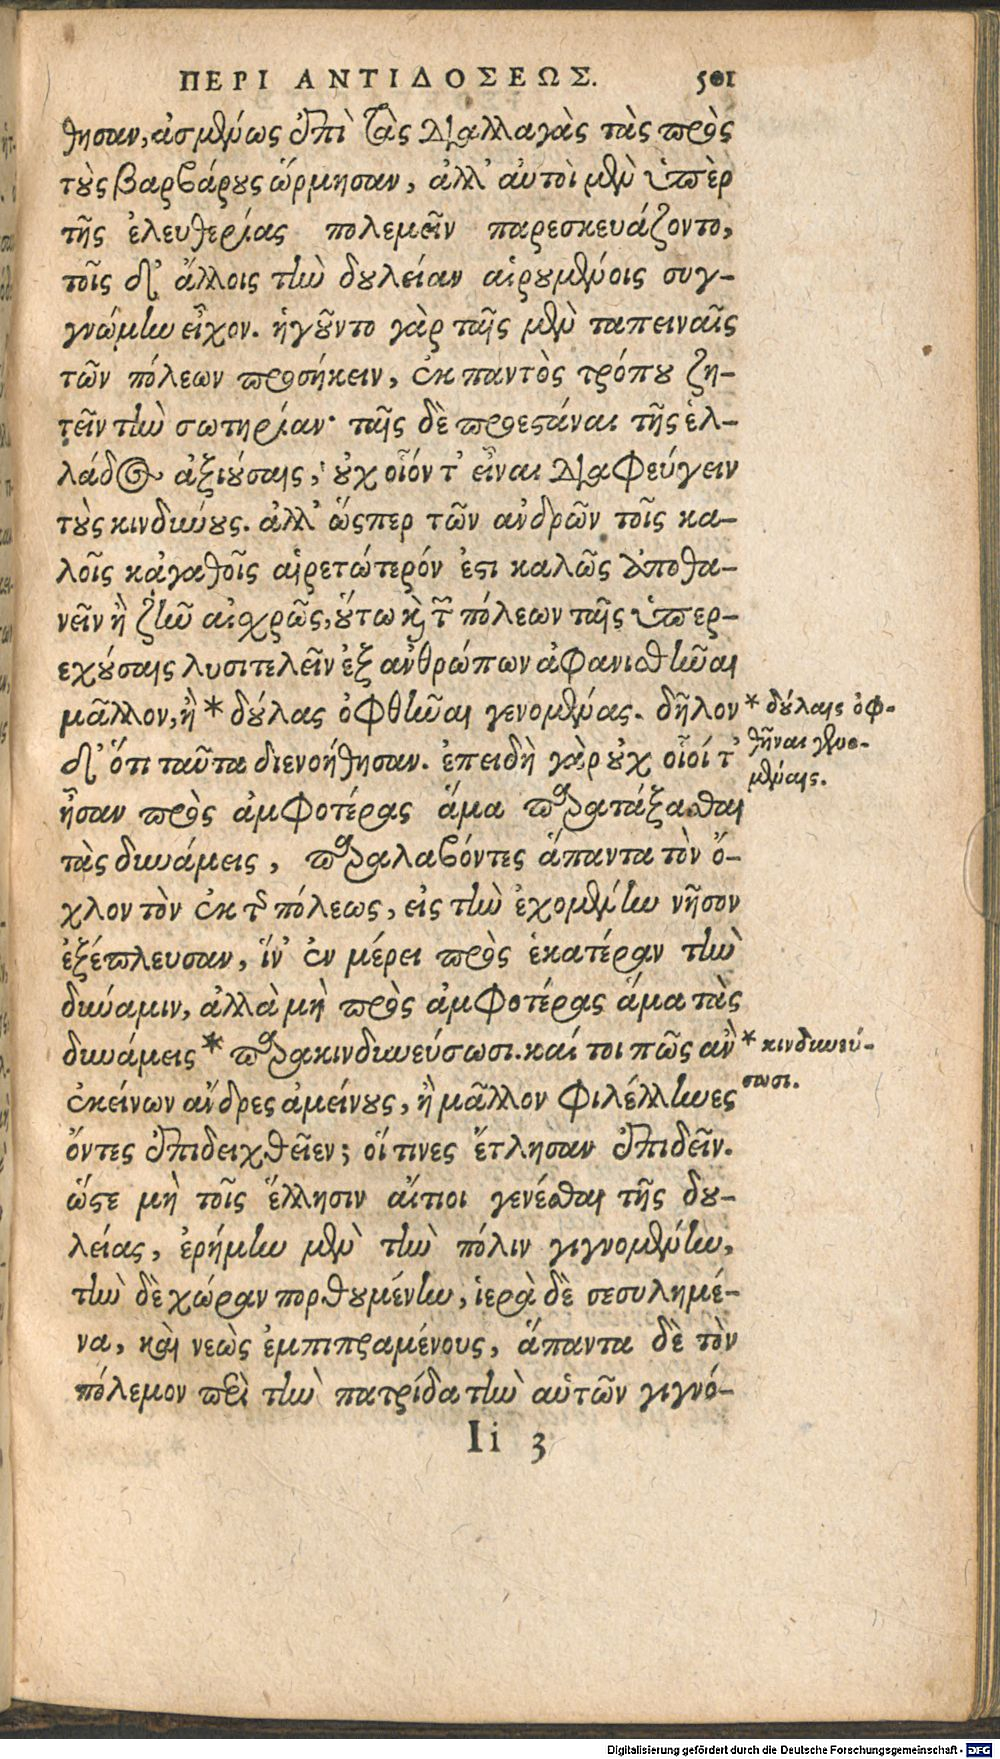 ΠΕΡΙ ΑΝΤΙΔΟΣΕΩΣ. 501
θησαν, ἀσμένως ἐπὶ τὰς διαλλαγὰς τὰς πρὸς
τοὺς βαρβάρους ὥρμησαν, ἀλλ' αὐτοὶ μὲν ὑπὲρ
τῆς ἐλευθερίας πολεμεῖν παρεσκευάζοντο,
τοῖς δ' ἄλλοις τὴν δουλείαν αἱρουμένοις συγ-
γνώμην εἶχον. ἡγοῦντο γὰρ ταῖς μὲν ταπειναῖς
τῶν πόλεων προσήκειν, ἐκ παντὸς τρόπου ζη-
τεῖν τὴν σωτηρίαν· ταῖς δὲ προεστάναι τῆς ἑλ-
λάδος ἀξιούσαις, οὐχ οἷόν τ' εἶναι διαφεύγειν
τοὺς κινδύνους. ἀλλ' ὥσπερ τῶν ἀνδρῶν τοῖς κα-
λοῖς κἀγαθοῖς αἱρετώτερόν ἐστι καλῶς ἀποθα-
νεῖν ἢ ζῆν αἰσχρῶς, οὕτω καὶ τῶν πόλεων ταῖς ὑπερ-
εχούσαις λυσιτελεῖν ἐξ ἀνθρώπων ἀφανισθῆναι
μᾶλλον, ἢ * δούλας ὀφθῆναι γενομένας. δῆλον * δούλαις ὀφ-
θῆναι γενο-
μέναις.
δ' ὅτι ταῦτα διενοήθησαν. ἐπειδὴ γὰρ οὐχ οἷοί τ'
ἦσαν πρὸς ἀμφοτέρας ἅμα παρατάξασθαι
τὰς δυνάμεις, παραλαβόντες ἅπαντα τὸν ὄ-
χλον τὸν ἐκ τῆς πόλεως, εἰς τὴν ἐχομένην νῆσον
ἐξέπλευσαν, ἵν' ἐν μέρει πρὸς ἑκατέραν τὴν
δύναμιν, ἀλλὰ μὴ πρὸς ἀμφοτέρας ἅμα τὰς
δυνάμεις * παρακινδυνεύσωσι. καί τοι πῶς ἂν * κινδυνεύ-
σωσι.
ἐκείνων ἄνδρες ἀμείνους, ἢ μᾶλλον φιλέλληνες
ὄντες ἐπιδειχθεῖεν; οἵ τινες ἔτλησαν ἐπιδεῖν.
ὥστε μὴ τοῖς ἕλλησιν αἴτιοι γενέσθαι τῆς δου-
λείας, ἐρήμην μὲν τὴν πόλιν γιγνομένην,
τὴν δὲ χώραν πορθουμένην, ἱερὰ δὲ σεσυλημέ-
να, καὶ νεὼς ἐμπιπραμένους, ἅπαντα δὲ τὸν
πόλεμον περὶ τὴν πατρίδα τὴν αὑτῶν γιγνό-
Ii 3
Digitalisierung gefördert durch die Deutsche Forschungsgemeinschaft - DFG